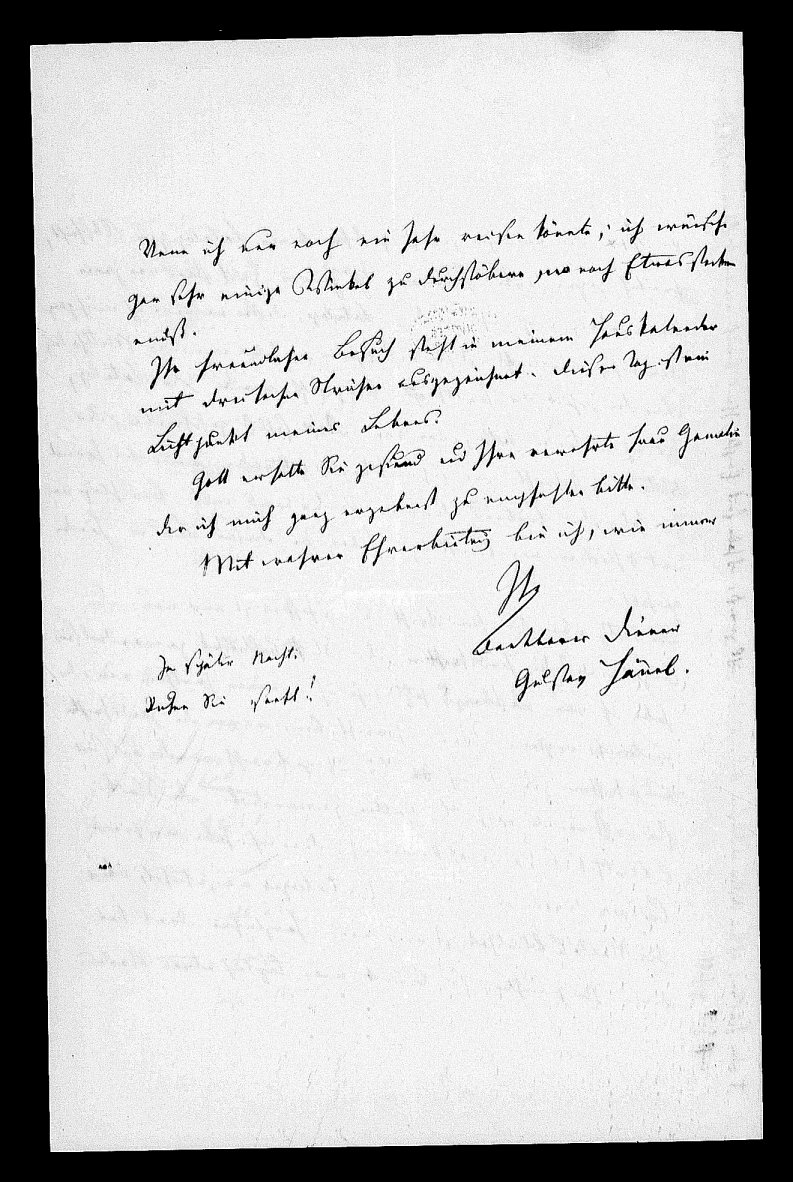 Wenn ich nur noch ein Jahr reisen könnte; ich wünsche
gar sehr einige Winkel zu durchstöbern, wo noch Etwas stecken
Ihr freundlicher Besuch steht in meinem Hauskalender
mit deutscher Strichen ausgezeichnet. Dieser Tag ist ein
Lichtpunkt meines Lebens.
Gott erhalte Sie gesund und Ihre verehrte Frau Gemalin
der ich mich ganz ergebenst zu empfehlen bitte.
Mit wahrer Ehrerbietung bin ich, wie immer
Ihr
dankbarer Diener
Gustav Hänel.
In später Nacht.
Ruhen Sie sanft!